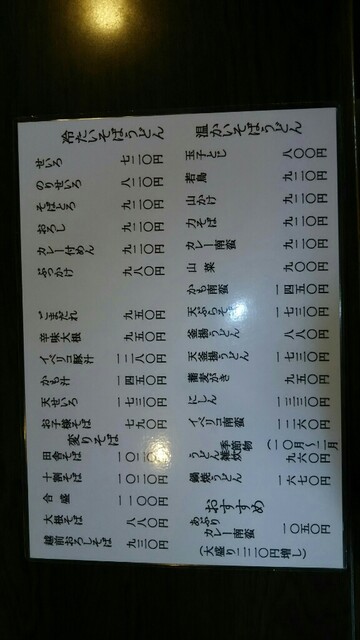 冷たいそばうどん
せいろ 七二〇円
のりせいろ 八二〇円
そばとろ 九二〇円
おろし 九二〇円
カレー付めん 九二〇円
ぶっかけ 九八〇円
ごまだれ 九五〇円
辛味大根 九五〇円
イベリコ豚汁 一二八〇円
かも汁 一四五〇円
天せいろ 一七三〇円
お子様そば 七九〇円
変りそば
田舎そば 一〇二〇円
十割そば 一〇二〇円
合盛 一一〇〇円
大根そば 八八〇円
越前おろしそば 九三〇円
温かいそばうどん
玉子とじ 八〇〇円
若鳥 九二〇円
山かけ 九二〇円
力そば 九二〇円
カレー南蛮 九二〇円
山菜 九〇〇円
かも南蛮 一四五〇円
天ぷらそば 一七三〇円
釜揚うどん 八八〇円
天釜揚うどん 一七三〇円
蕎麦がき 九五〇円
にしん 一三三〇円
イベリコ南蛮 一二六〇円
季節物 (一〇月〜二月
うどん雑炊 九六〇円
鍋焼うどん 一六七〇円
おすすめ
あぶり
カレー南蛮 一〇五〇円
(大盛り二二〇円増し)